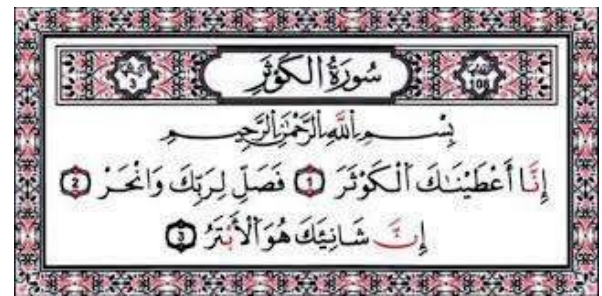 سُورَةُ الكَوْثَرِ
108
3
بِسْمِ اللَّهِ الرَّحْمَٰنِ الرَّحِيمِ
إِنَّا أَعْطَيْنَـٰكَ ٱلْكَوْثَرَ 1 فَصَلِّ لِرَبِّكَ وَانْحَرْ 2
إِنَّ شَانِئَكَ هُوَ ٱلْأَبْتَرُ 3